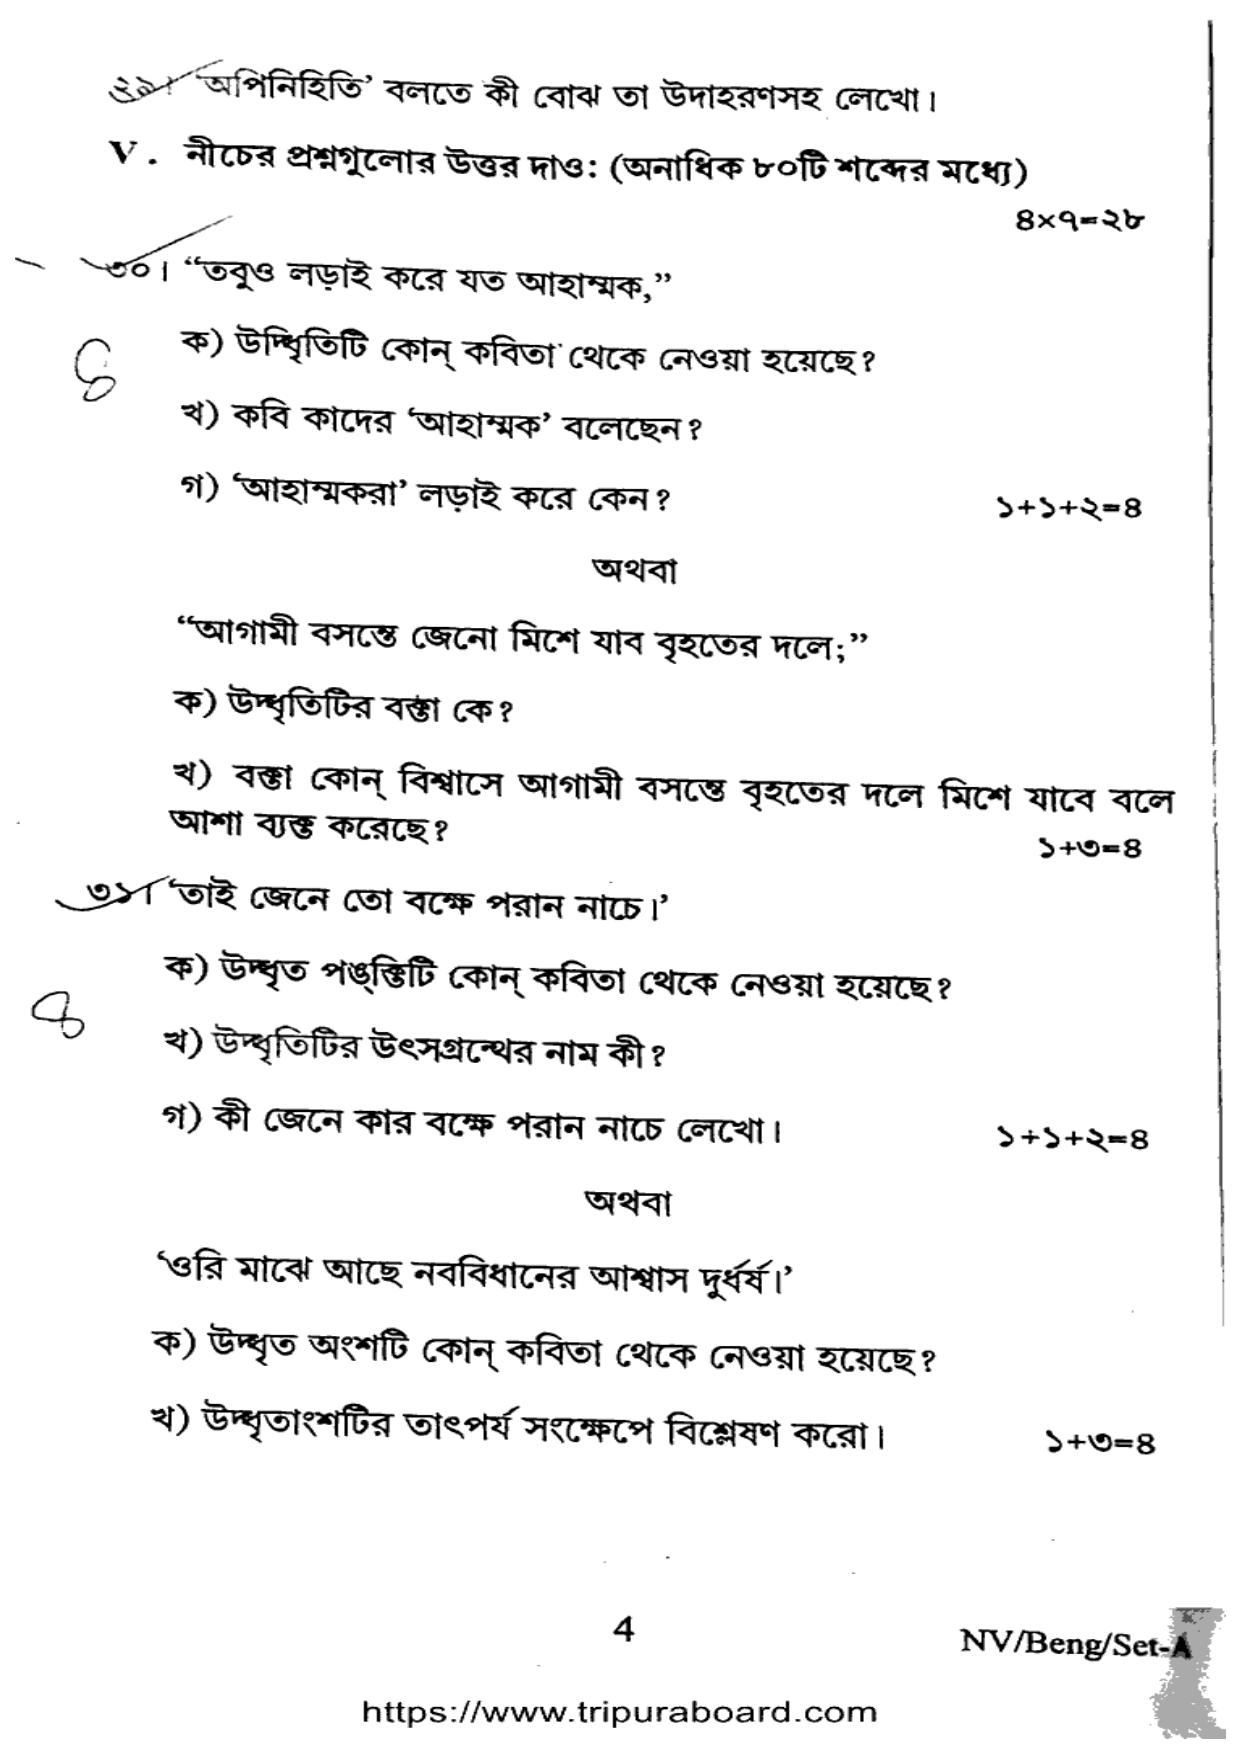 ২৯। 'অপিনিহিতি' বলতে কী বোঝ তা উদাহরণসহ লেখো।
V. নীচের প্রশ্নগুলোর উত্তর দাও: (অনাধিক ৮০টি শব্দের মধ্যে)
৪×৭=২৮
৩০। “তবুও লড়াই করে যত আহাম্মক,”
ক) উদ্ধৃতিটি কোন্ কবিতা থেকে নেওয়া হয়েছে?
৪
খ) কবি কাদের ‘আহাম্মক’ বলেছেন?
গ) ‘আহাম্মকরা’ লড়াই করে কেন?
১+১+২=৪
অথবা
“আগামী বসন্তে জেনো মিশে যাব বৃহতের দলে;”
ক) উদ্ধৃতিটির বক্তা কে?
খ) বক্তা কোন্ বিশ্বাসে আগামী বসন্তে বৃহতের দলে মিশে যাবে বলে
আশা ব্যক্ত করেছে?
১+৩=৪
৩১। ‘তাই জেনে তো বক্ষে পরান নাচে।’
ক) উদ্ধৃত পঙ্ক্তিটি কোন্ কবিতা থেকে নেওয়া হয়েছে?
৪
খ) উদ্ধৃতিটির উৎসগ্রন্থের নাম কী?
গ) কী জেনে কার বক্ষে পরান নাচে লেখো।
১+১+২=৪
অথবা
‘ওরি মাঝে আছে নববিধানের আশ্বাস দুর্ধর্ষ।’
ক) উদ্ধৃত অংশটি কোন্ কবিতা থেকে নেওয়া হয়েছে?
খ) উদ্ধৃতাংশটির তাৎপর্য সংক্ষেপে বিশ্লেষণ করো।
১+৩=৪
4
NV/Beng/Set-A
https://www.tripuraboard.com